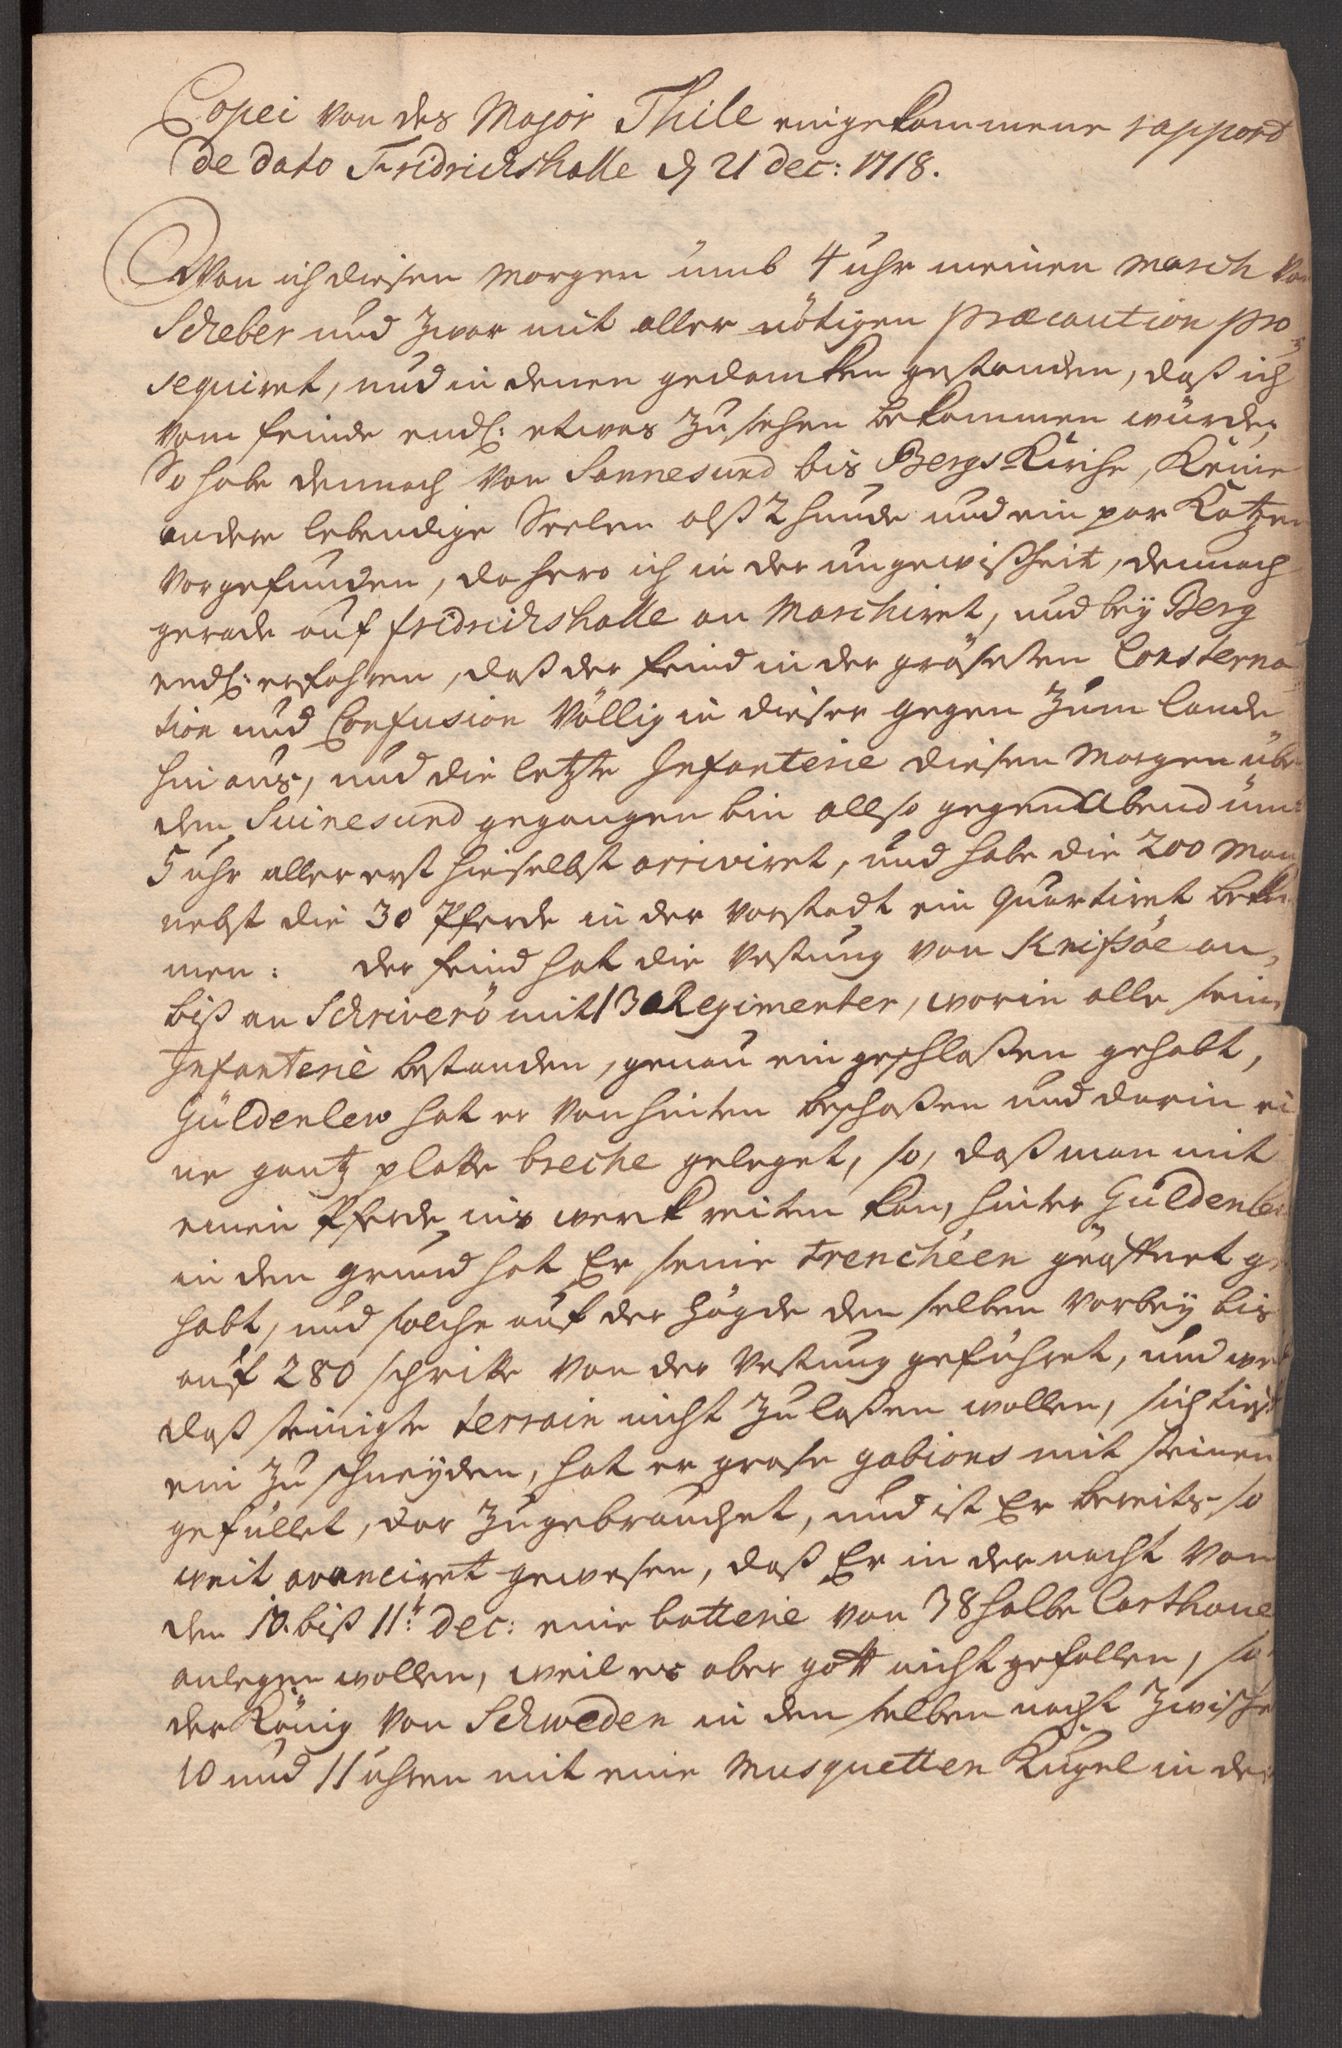 Copei von des Major Thile eingekommene rapport
de dato Fridrichshalle d 21 dec: 1718.
Wan ich diesen Morgen umb 4 uhr meinen march von
Scheber und zwar mit aller nötigen præcaution pro-
sequiret, und in denen gedancken gestanden, daß ich
vom feinde endl: etwas zu sehen bekommen würde,
So habe dennoch von Sannesund bis Bergs Kirche, Keine
andere lebendige Seelen alß 2 hunde und ein par Katzen
vorgefunden, dahero ich in der ungewißheit, dennoch
gerade auf fridrichshalle an Marchiret, und bey Berg
endl: erfahren, daß der feind in der grösesten Consterna
tion und Confusion völlig in dieser gegen zum lande
hinaus, und die letzte Infanterie diesen Morgen über
dem Suinesund gegangen bin allso gegen Abend um
5 uhr aller erst hieselbst arriviret, und habe die 200 Man
nebst die 30 Pferde in der vorstadt ein quartiret bekom
men: der feind hat die Vestung von Knißöe an,
biß an Schriverö mit 13 Regimenter, worin alle seine
Infanterie bestanden, genau eingeschlaßen gehabt,
Güldenlew hat er von hinten beschoßen und darin ei
ne gantz platte breche geleget, so, daß man mit
einen Pferde ins werk reiten kan, hinter Güldenlew
in den grund hat Er seine trenchéen geöffnet ge
habt, und solche auf der högde den selben vorbey bis
auf 280 schritte von der Vestung geführet, und weil
daß steinigte terrain nicht zu laßen wollen, sich tief
ein zu schneyden, hat er grose gabions mit steinen
gefüllet, dar zu gebrauchet, und ist Er bereits so
weit avanciret gewesen, daß Er in der nacht von
den 10. biß 11t dec: eine batterie von 38 halbe Carthoue
anlegen wollen, weil es aber gott nicht gefallen, so
der König von Schweden in den selben nacht zwische
10 und 11 uhren mit eine Musquetten Kugel in den